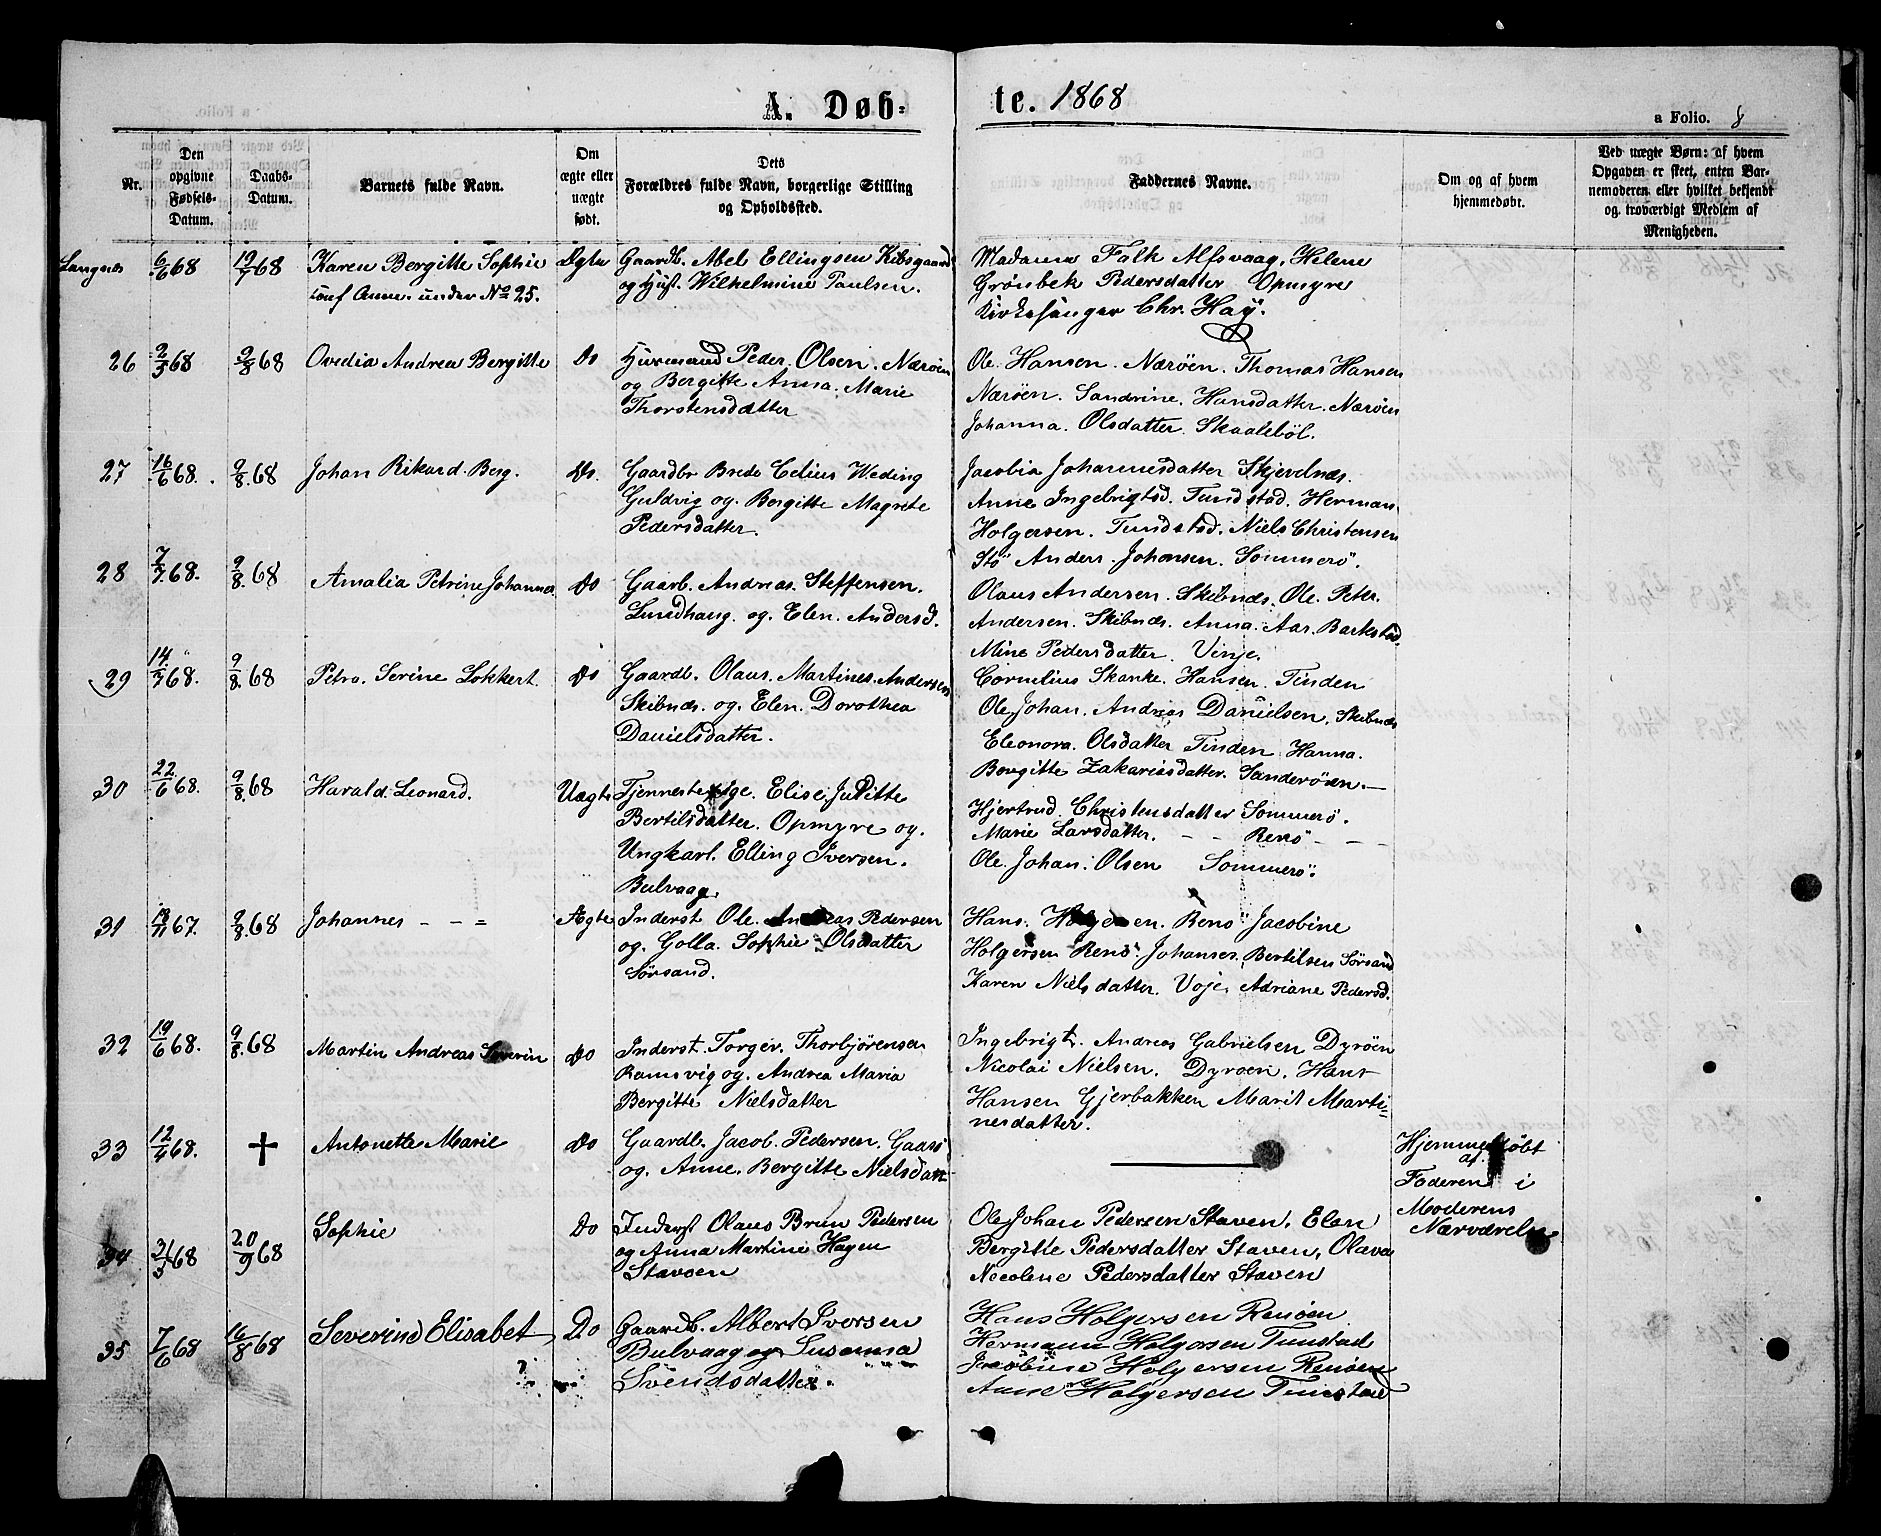 A. Døb-
te. 1868
a Folio. 8
Nr.
Den opgivne Fødsels-Datum.
Daabs-Datum.
Barnets fulde Navn.
Om ægte eller uægte født.
Dets Forældres fulde Navn, borgerlige Stilling og Opholdssted.
Faddernes Navne.
Om og af hvem hjemmedøbt.
Ved uægte Børn: af hvem Opgaven er skeet, enten Barnemoderen eller hvilket bekjendt og troværdigt Medlem af Menigheden.
Langnes 6/6 68 19/7 68 Karen Bergitte Sophie
conf Anm. under No 25.
Ægte
Gaardb. Abel Ellingsen Kibsgaard
og Hust. Wilhelmine Paulsen.
Madama Falk Alfsvaag, Helene
Grönbek Pedersdatter Opmyre
Kirkesanger Chr. Høy.
26 2/5 68 9/8 68 Ovedia Andrea Bergitte
Do
Husmand Peder Olsen. Nærøen
og Bergitte Anna. Marie
Thorstensdatter
Ole. Hansen. Nærøen. Thomas Hansen
Nærøen. Sandrine. Hansdatter. Nærøen
Johanna. Olsdatter. Skaaleböl.
27 16/6 68. 9/8 68 Johan Rikard. Berg.
Do.
Gaardbr Brede Celius Weding
Guldvig og. Bergitte Magrete
Pedersdatter.
Jacobia Johannesdatter Skjevelnæs.
Anne Ingebrigtsd. Tundstad. Herman
Holgersen. Tundstad. Niels Christensen
Stö Anders Johansen. Sommerö.
28 7/7 68. 9/8 68 Amalia Petrine Johannes
Do
Gaarb. Andreas. Steffensen.
Lundhaug. og. Elen. Andersd.
Olaus Andersen. Skibnæs. Ole. Peter.
Andersen. Skibnæs. Anna. Aar. Barkstad
Mine Pedersdatter. Vinje.
29 14/7 68. 9/8 68 Petra. Serine Lokkert.
Do
Gaardb. Olaus. Martines. Andersen
Skibnæs. og. Elen. Dorothea
Danielsdatter.
Cornelius Skanke. Hansen. Tinden
Ole. Johan. Andreas Danielsen. Skibnæs
Eleonora. Olsdatter Tinden Hanna.
Borgitte Zakariasdatter. Sanderöen.
30 22/6 68. 9/8 68 Harald. Leonard.
Uægte
Tjenestepige. Elise. Juditte
Bertilsdatter. Opmyre og.
Ungkarl. Elling Iversen.
Bulvaag.
Hjertrud. Christensdatter Sommerö.
Marie Larsdatter. - - Renö - - -
Ole. Johan. Olsen Sommerö.
31 18/11 67. 9/8 68 Johannes - - =
Ægte
Inderst Ole. Andreas Pedersen
og. Golla. Sophie. Olsdatter
Sörsand.
Hans. Holgersen. Renö Jacobine
Holgersen Renö. Johannes. Bertilsen Sörsand
Karen Nielsdatter. Voje. Adriane Pedersd.
32 19/6 68. 9/8 68 Martin Andreas Severin
Do
Inderst. Torger. Thorbjörensen
Ramsvig og. Andrea Maria
Bergitte Nielsdatter
Ingebrigt. Andreas Gabrielsen Dyröen
Nicolai Nielsen. Dyroen. Hans
Hansen Gjerbakken Marit Marti-
nesdatter.
33 12/4 68. + Antonette Marie
Do
Gaardb. Jacob. Pedersen. Gaasö
og. Anne. Bergitte Nielsdatt
Hjemmedöbt
af
Faderen i
Moderens
Nærværelse
34 31/5 68 20/9 68 Sophie
Do
Inderst Olaus Brun Pedersen
og Anna Martine Hagen
Stavoen
Ole Johan Pedersen Staven. Elen
Bergitte Pedersdatter Staven, Olava
Necolene Pedersdatter Staven
35 7/6 68 16/8 68 Severine Elisabet
Do
Gaardb. Albert Iversen
Bulvaag og Susanna
Svendsdatter.
Hans Holgersen Renöen
Hermann Holgersen Tunstad
Jacobine Holgersen Renöen
Anne Holgersen Tunstad